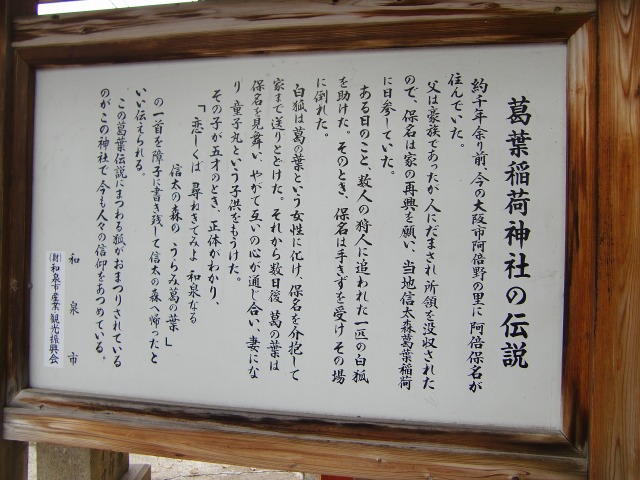 葛葉稲荷神社の伝説
約千年余り前、今の大阪市阿倍野の里に 阿倍保名が
住んでいた。
父は豪族であったが人にだまされ所領を没収された
ので、保名は家の再興を願い、当地信太森葛葉稲荷
に日参していた。
ある日のこと、数人の狩人に追われた一匹の白狐
を助けた。そのとき、保名は手きずを受け その場
に倒れた。
白狐は葛の葉という女性に化け、保名を介抱して
家まで送りとどけた。それから数日後 葛の葉は
保名を見舞い、やがて互いの心が通じ合い、妻にな
り 童子丸という子供をもうけた。
その子が五才のとき、正体がわかり、
「恋しくば 尋ねきてみよ 和泉なる
信太の森の うらみ葛の葉 」
の一首を障子に書き残して信太の森へ帰ったと
いい伝えられる。
この葛葉伝説にまつわる狐がおまつりされている
のがこの神社で 今も人々の信仰をあつめている。
和泉市
(財)和泉市産業観光振興会